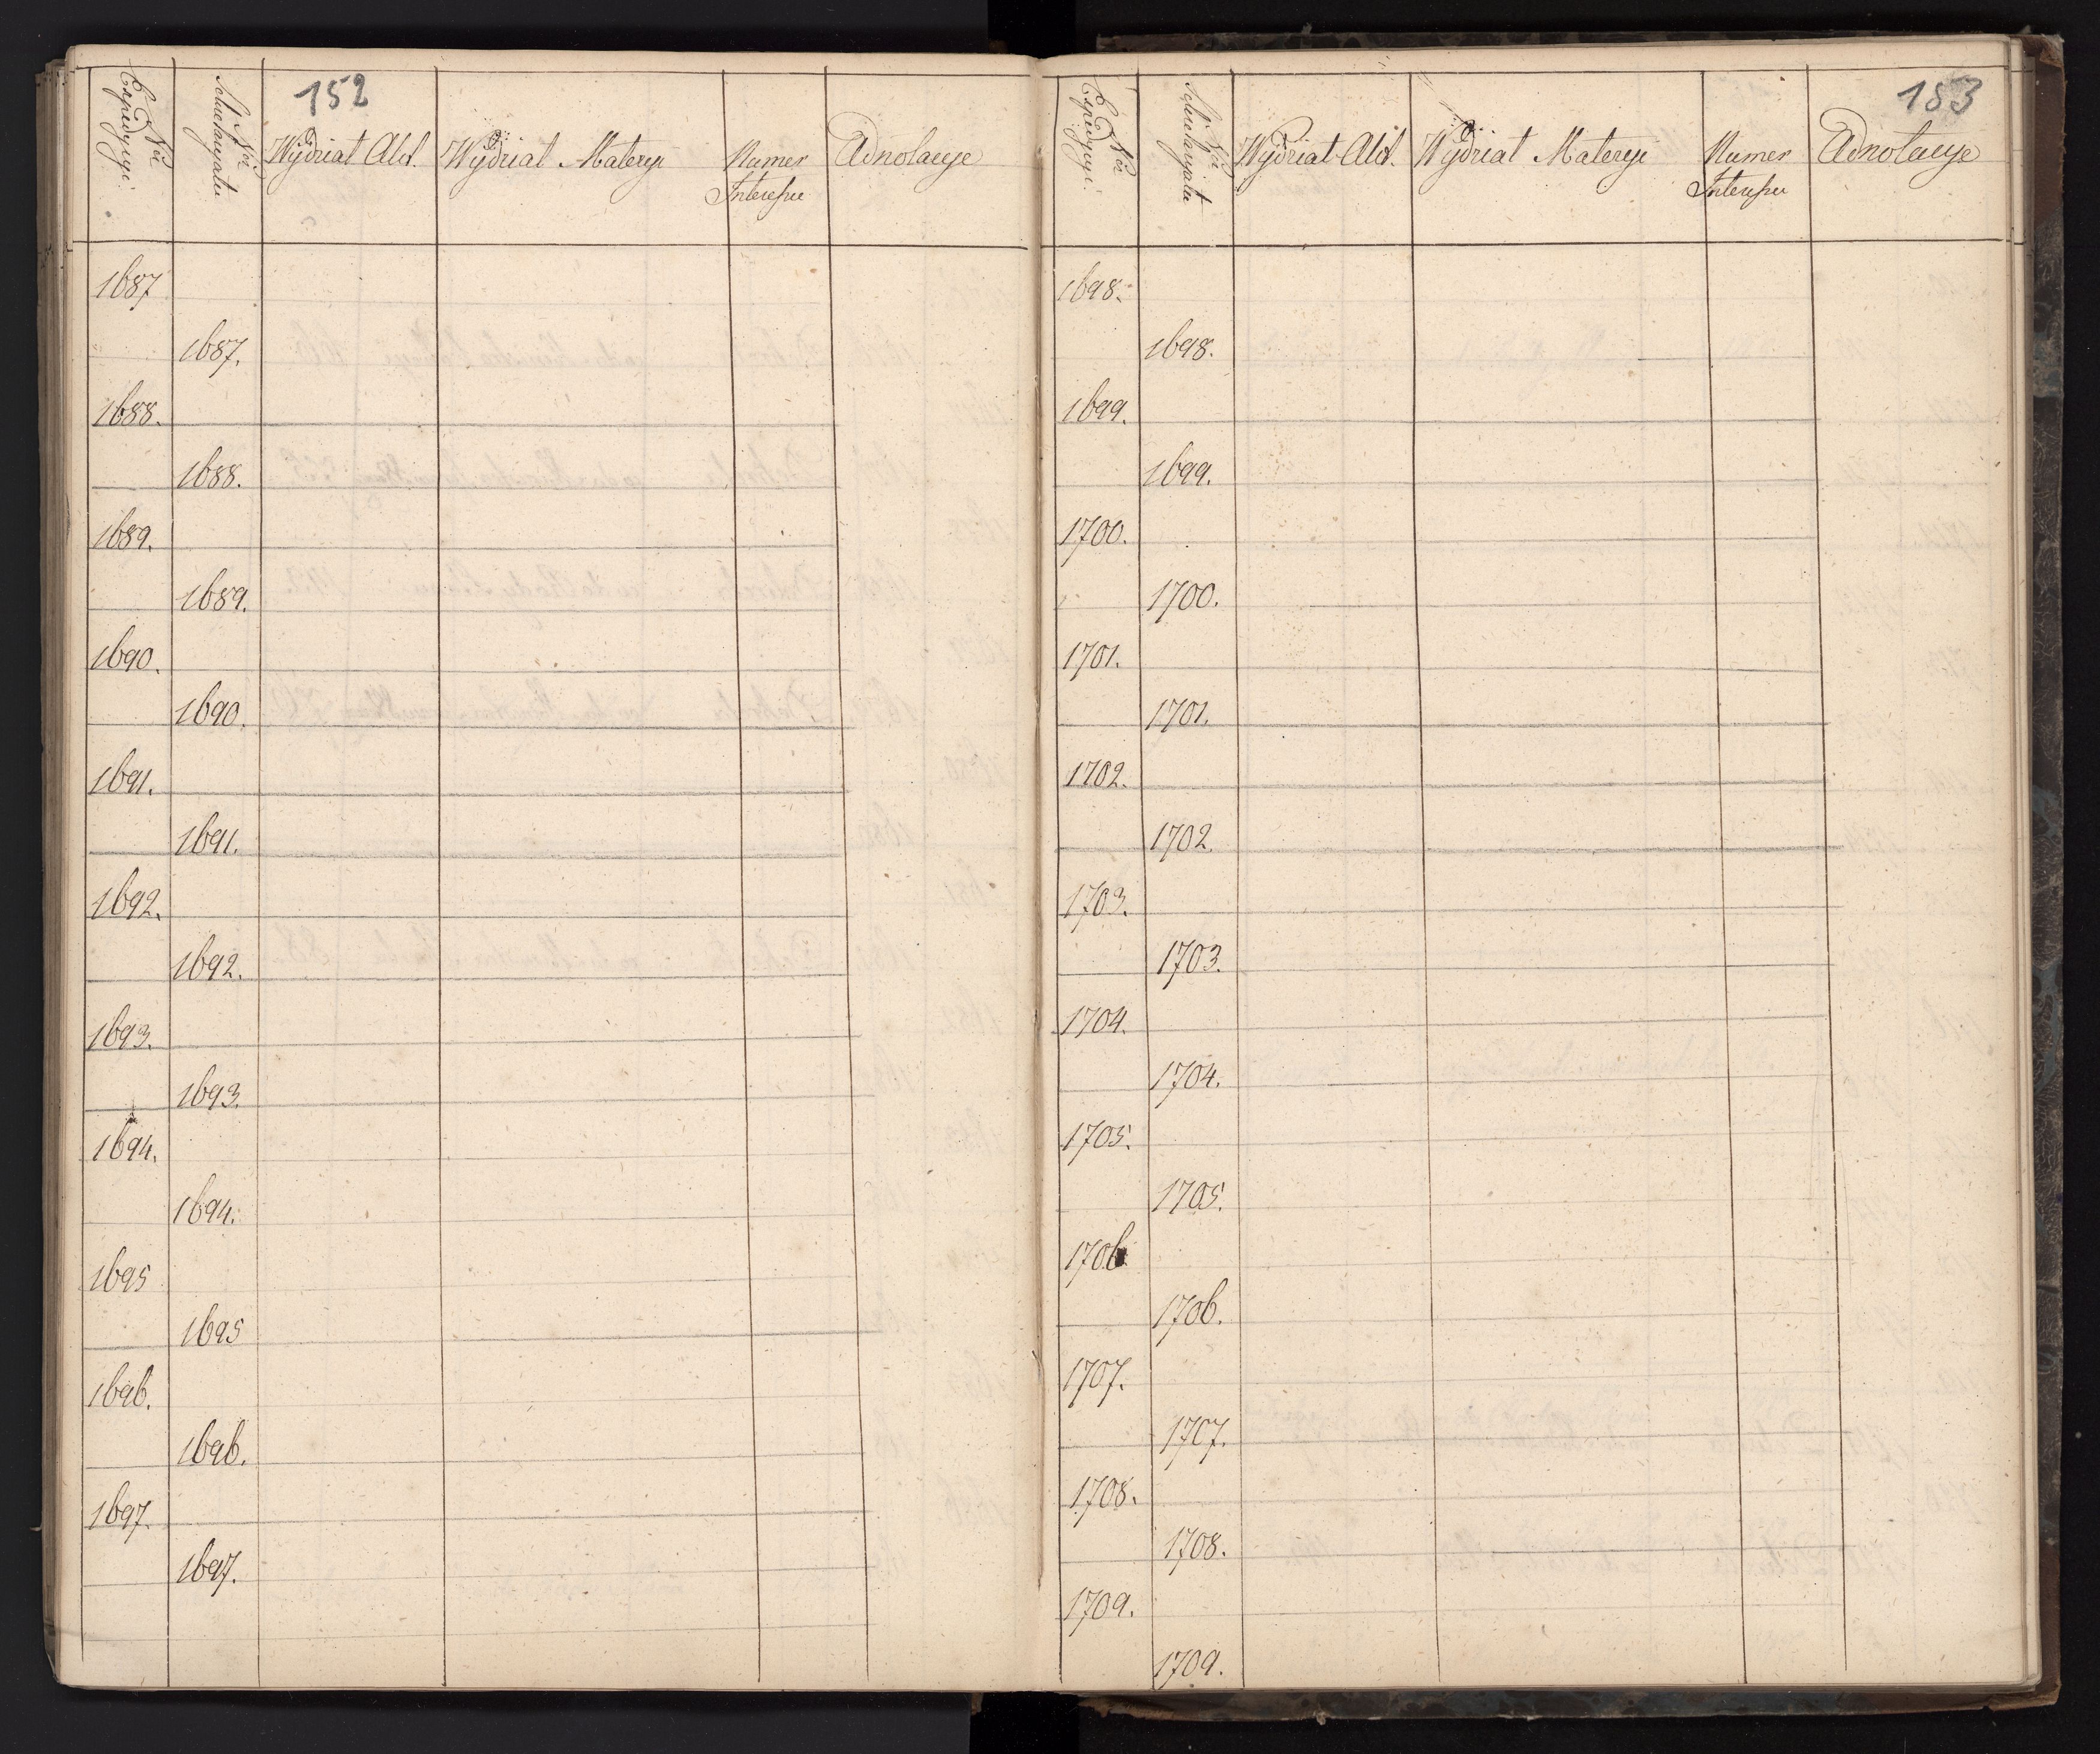 152
Nro Expedycyi.
Nro Sekretaryatu
Wydział Akt.
Wydział Materyi
Numer
Interessu
Adnotacye
1687
1687.
1688.
1688.
1689.
1689.
1690.
1690.
1691.
1691.
1692.
1692.
1693.
1693.
1694.
1694.
1695
1695
1696.
1696.
1697.
1697.
153
Nro Expedycyi.
Nro Sekretaryatu
Wydział Akt.
Wydział Materyi
Numer
Interessu
Adnotacye
1698.
1698.
1699.
1699.
1700.
1700.
1701.
1701.
1702.
1702.
1703.
1703.
1704.
1704.
1705.
1705.
1706
1706.
1707.
1707.
1708.
1708.
1709.
1709.